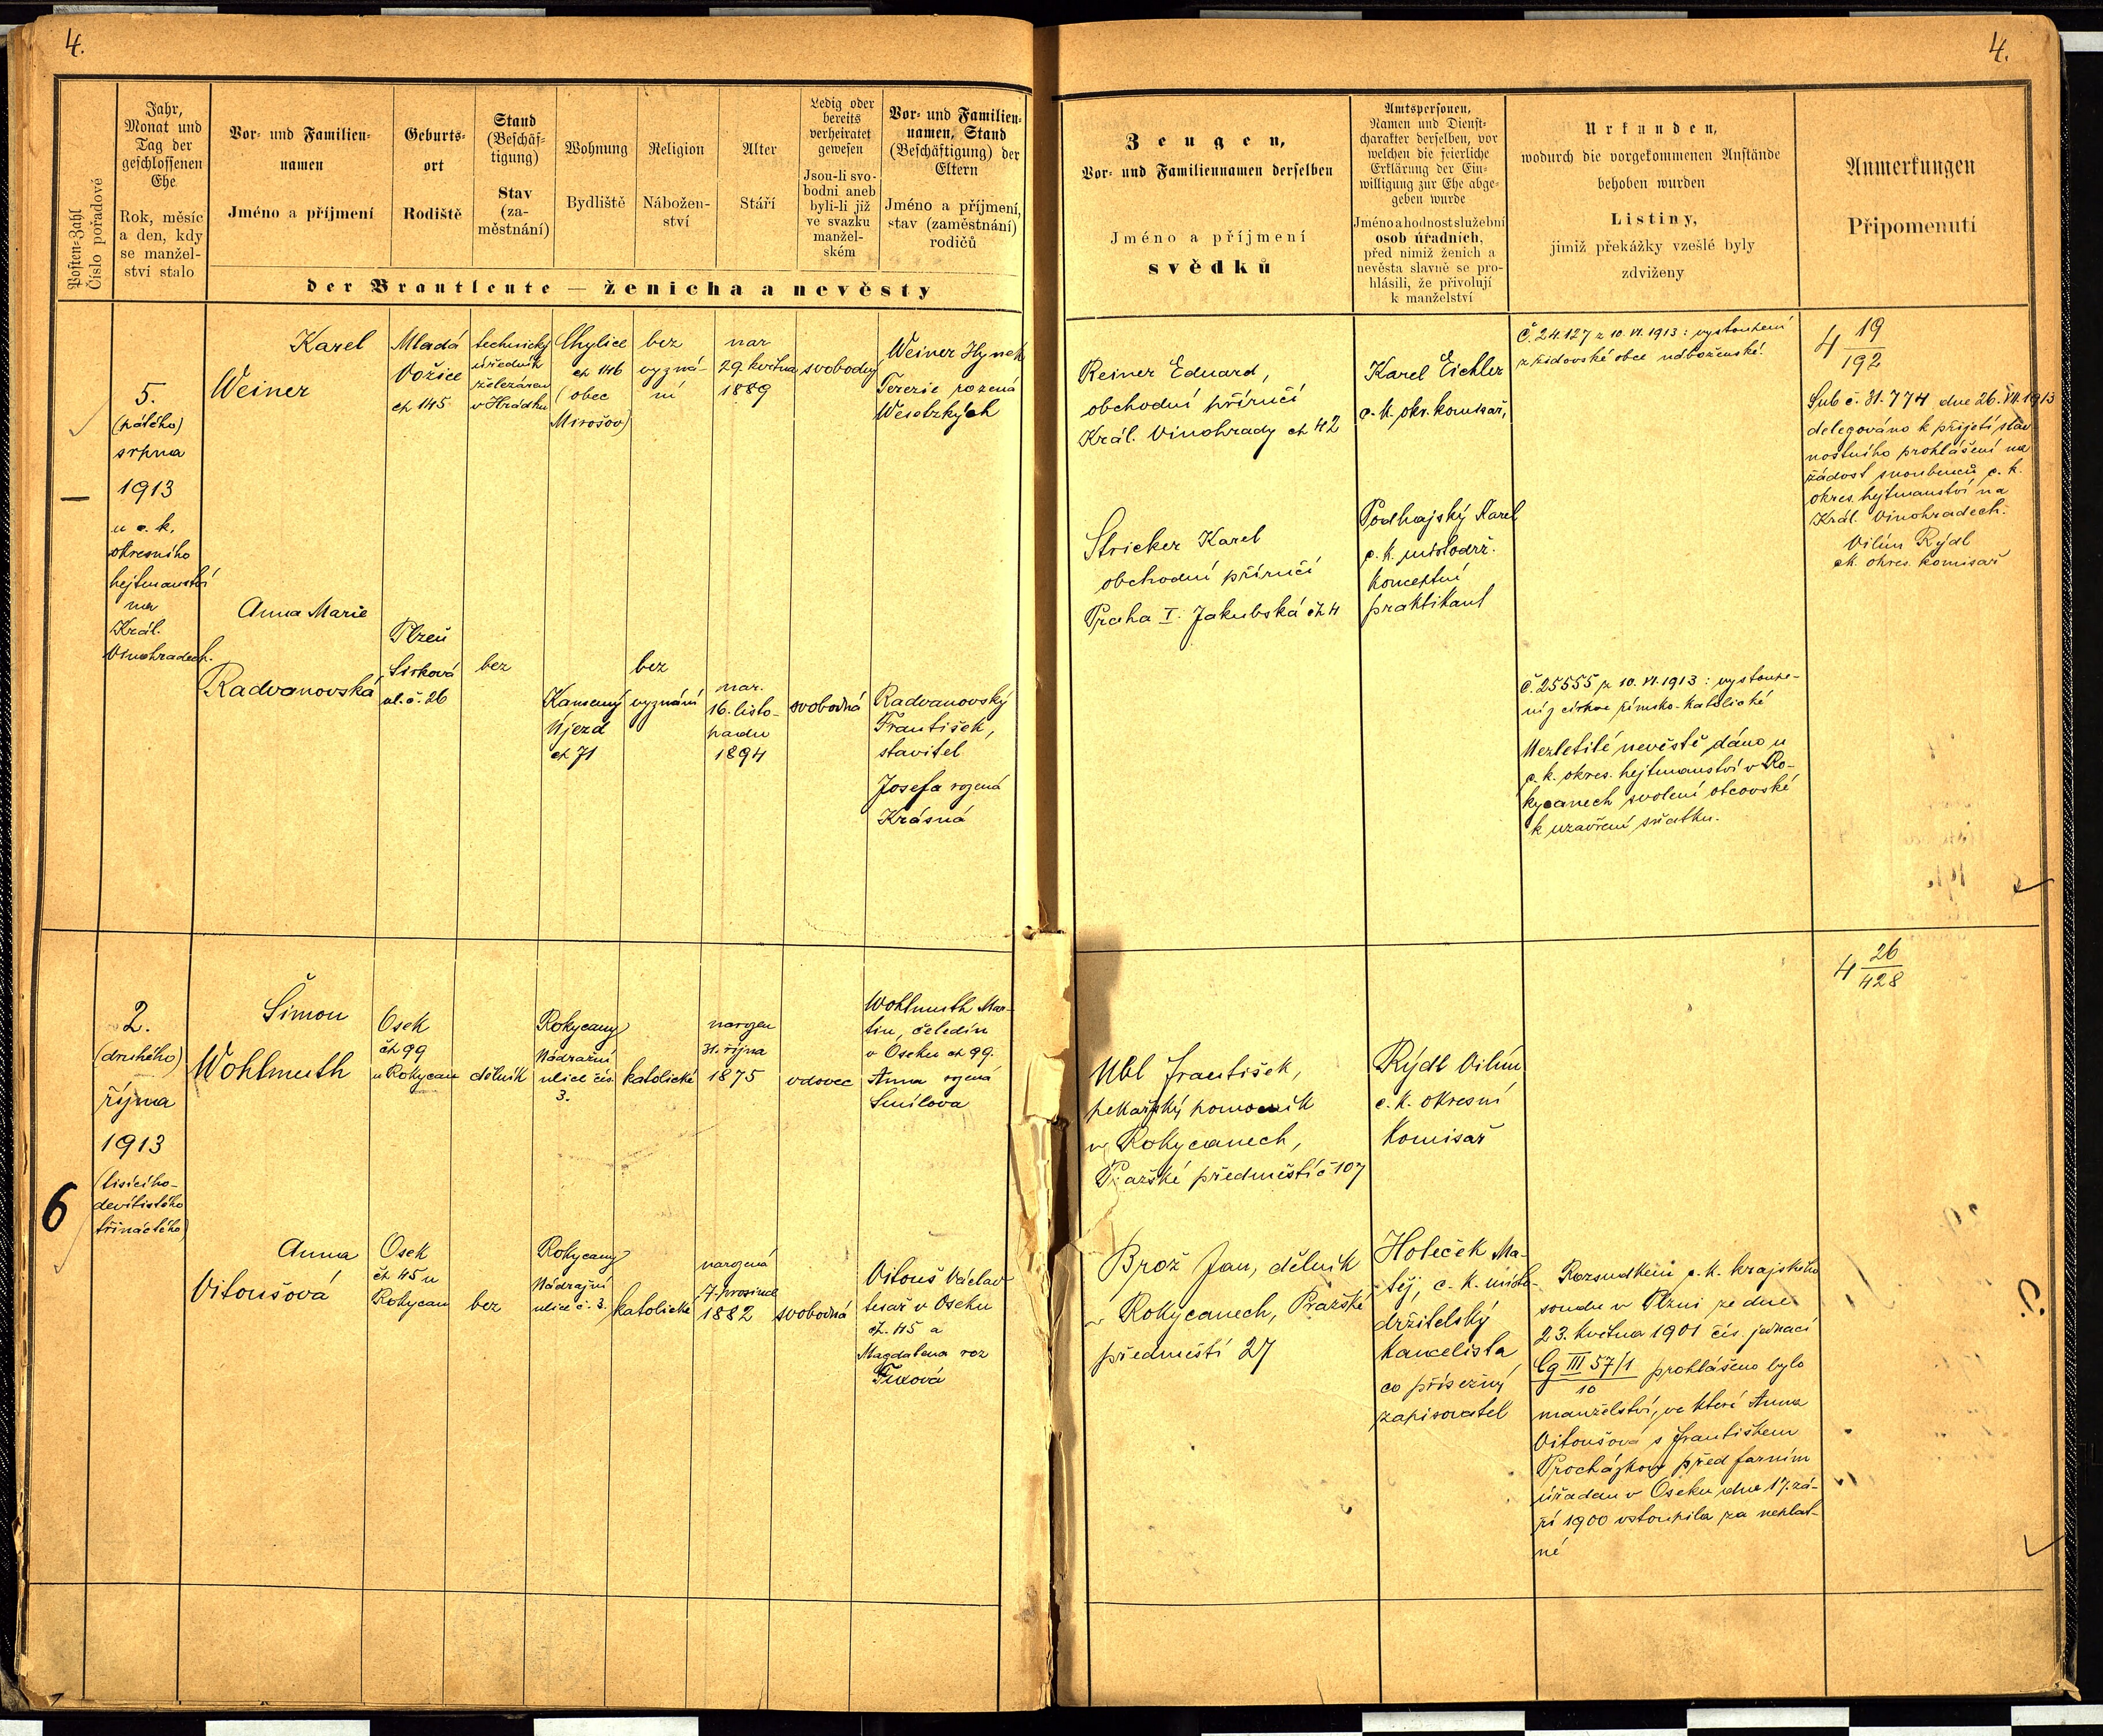 4.
4.
Posten-Zahl
Číslo pořadové
Jahr,
Monat und
Tag der
geschlossenen
Ehe
Rok, měsíc
a den, kdy
se manžel-
ství stalo
Vor- und Familien-
namen
Jméno a příjmení
Geburts-
ort
Rodiště
Stand
(Beschäf-
tigung)
Stav
(za-
městnání)
Wohnung
Bydliště
Religion
Nábožen-
ství
Alter
Stáří
Ledig oder
bereits
verheiratet
gewesen
Jsou-li svo-
bodni aneb
byli-li již
ve svazku
manžel-
ském
Vor- und Familien-
namen, Stand
(Beschäftigung) der
Eltern
Jméno a příjmení,
stav (zaměstnání)
rodičů
der Brautleute — ženicha a nevěsty
Zeugen,
Vor- und Familiennamen derselben
Jméno a příjmení
svědků
Amtspersonen,
Namen und Dienst-
charakter derselben, vor
welchen die feierliche
Erklärung der Ein-
willigung zur Ehe abge-
geben wurde
Jméno a hodnost služební
osob úřadních,
před nimiž ženich a
nevěsta slavně se pro-
hlásili, že přivolují
k manželství
Urkunden,
wodurch die vorgekommenen Anstände
behoben wurden
Listiny,
jimiž překážky vzešlé byly
zdviženy
Anmerkungen
Připomenutí
—
5.
(pátého)
srpna
1913
u c. k.
okresního
hejtmanství
na
Král.
Vinohradech.
Karel
Weiner
Mladá
Vožice
čp 145
technický
úředník
železáren
v Hrádku
Chylice
čp 146
(obec
Mirošov)
bez
vyzná-
ní
nar
29. května
1889
svobodný
Weiner Hynek
Terezie rozená
Weselzkých
Anna Marie
Radvanovská
Plzeň
Sirková
ul. č. 26
bez
Kamenný
Újezd
čp 71
bez
vyznání
nar.
16. listo-
padu
1894
svobodná
Radvanovský
František,
stavitel
Josefa rozená
Krásná
Reiner Eduard,
obchodní příručí
Král. Vinohrady čp 42
Stricker Karel
obchodní příručí
Praha I. Jakubská čp 4
Karel Eichler
c. k. okr. komisař,
Podhajský Karel
c. k. místodrž.
konceptní
praktikant
Č. 24.127 z 10. VI. 1913: vystoupení
z židovské obce náboženské.
Č. 25555 z 10. VI. 1913: vystoupe-
ní z církve římsko-katolické
Nezletilé nevěstě dáno u
c. k. okres. hejtmanství v Ro-
kycanech svolení otcovské
k uzavření sňatku.
4 19
192
Sub č. 31.774 dne 26. VII. 1913
delegováno k přijetí slav
nostního prohlášení na
žádost snoubenců c. k.
okres. hejtmanství na
Král. Vinohradech.
Vilím Rýdl
ck. okres. komisař
6
2.
(druhého)
října
1913
(tisícího-
devítistého
třináctého)
Šimon
Wohlmuth
Osek
čp 99
u Rokycan
dělník
Rokycany
Nádražní
ulice čís
3.
katolické
narozen
31. října
1875
vdovec
Wohlmuth Mar-
tin, čeledín
v Oseku čp 99.
Anna rozená
Smílova
Anna
Vitoušová
Osek
čp 45 u
Rokycan
bez
Rokycany
Nádražní
ulice č. 3.
katolické
narozená
7. prosince
1882
svobodná
Vitouš Václav
tesař v Oseku
čp. 45 a
Magdalena roz
Fuxová
Ubl František,
pekařský pomocník
v Rokycanech,
Pražské předměstí č 107
Brož Jan, dělník
v Rokycanech, Pražské
předměstí 27
Rýdl Vilím
c. k. okresní
komisař
Holeček Ma-
těj, c. k. místo-
držitelský
kancelista
co přísežný
zapisovatel
Rozsudkem c. k. krajského
soudu v Plzni ze dne
23. května 1901 čís. jednací
Cg III 57/1 prohlášeno bylo
10
manželství, ve které Anna
Vitoušová s Františkem
Procházkou před farním
úřadem v Oseku dne 17. zá-
ří 1900 vstoupila za neplat-
né
4 26
428